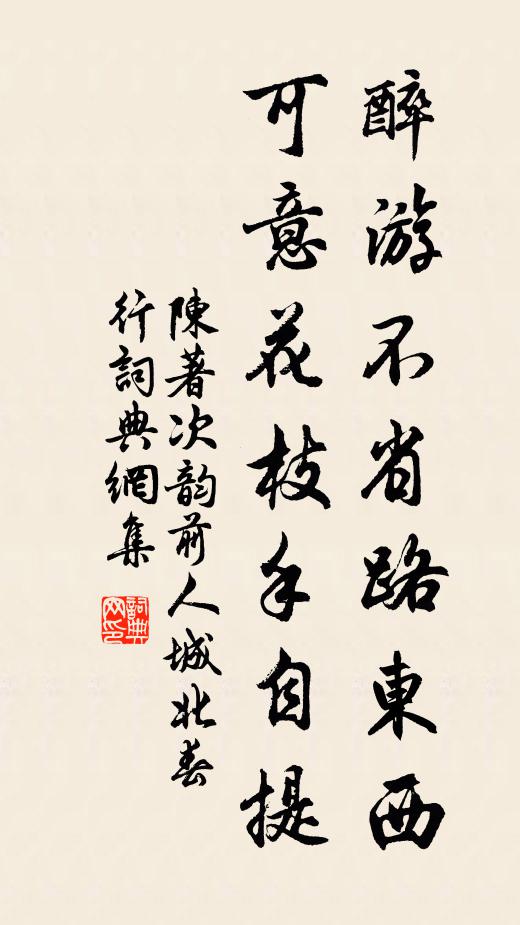 醉游不省路東西
可意花枝手自提
陳著次韵前人城北春
行詞典網集
詞典网印